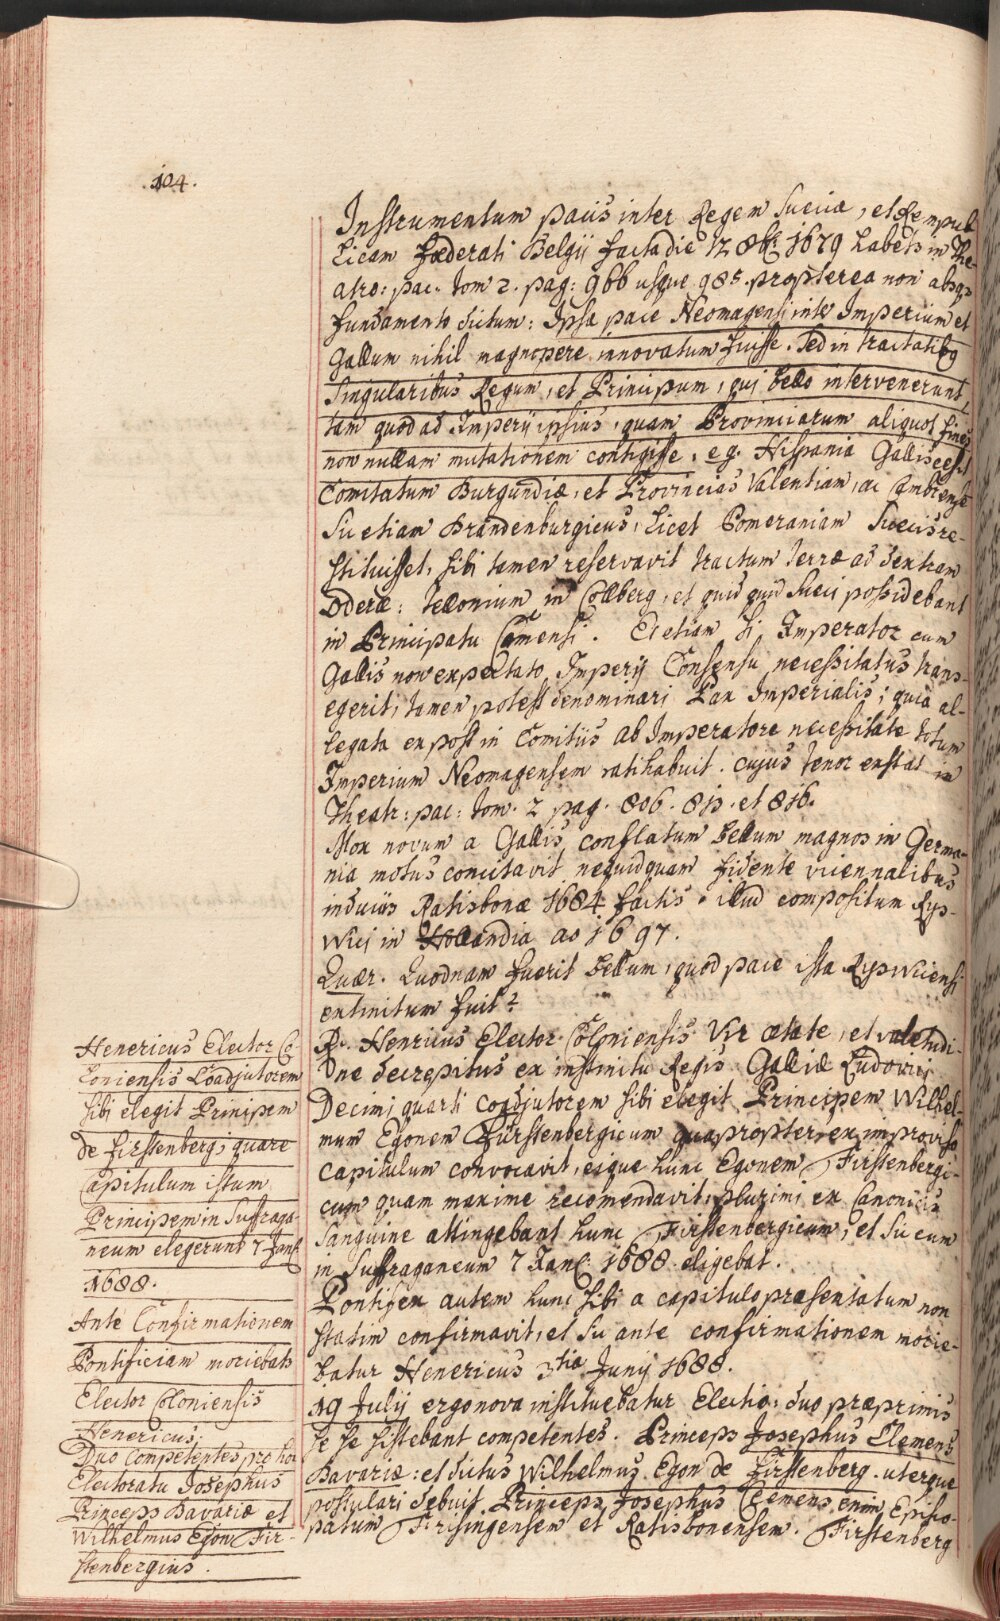 104.
Instrumentum pacis inter Regem Sueciæ, et Rempub
licam Fœderati Belgij facta die 12 8b: 1679 habets in The-
atro: pac. tom 2. pag: 966 usque 985. propterea non absqz
fundamento dictum: Ipsa pace Neomagensi inter Imperium et
Gallum nihil magnopere innovatum fuisse. sed in tractatibq
singularibus Regum, et Principum, qui bello intervenerant,
tam quod ad Imperij ipsius, quam Provinciarum aliquot fines
non nullam mutationem contigisse. e.g. Hispania Gallis cessit
Comitatum Burgundiæ, et Provincias Valentiam, ac Cambrense
Sic etiam Brandenburgicus, licet Pomeraniam Suecis re-
stituisset, sibi tamen reservavit tractum terræ ad dextram
Oderæ: telonium in Collberg, et quid quid Sueci possidebant
in Principatu Camensi. Et etiam si Imperator cum
Gallis non expectato Imperij Consensu necessitatus trans-
egerit, tamen potest denominari Pax Imperialis; quia al-
legata ex post in Comitiis ab Imperatore necessitate totum
Imperium Neomagensem ratihabuit. cujus tenor exstat in
Theatr: pac: tom. 2 pag. 806. 813. et 816.
Mox novum a Gallis conflatum bellum magnos in Germa-
nia motus concitavit nequidquam fidente vicennalibus
induciis Ratisbonæ 1684 factis. illud compositum Rys-
wici in Hollandia ao 1697.
Quær. Quodnam fuerit bellum, quod pace ista Ryswicensi
extinctum fuit?
R. Henricus Elector Coloniensis Vir ætate, et valetudi-
One decrepitus ex instinctu Regis Galliæ Ludovici
Decimi quarti coadjutorem sibi elegit Principem Wilhel-
mum Egonem Fürstenbergicum quapropter, ex improviso
capitulum convocavit, eique hunc Egonem Firstenbergi-
cum quam maxime recomendavit, plurimi ex Canonicis
sanguine attingebant hunc Firstenbergicum, et sic eum
in Suffraganeum 7 Jan: 1688 eligebat.
Pontifex autem hunc sibi a capitulo præsentatum non
statim confirmavit, et sic ante confirmationem morie-
batur Henericus 3tia Junij 1688.
19 Julij ergo nova instituebatur Electio, duo præprimis
se se sistebant competentes. Princeps Josephus Clemens
Bavariæ: et dictus Wilhelmus Egon de Firstenberg. uterque
postulari debuit. Princeps Josephus Clemens enim Episco-
patum Frisingensem et Ratisbonensem. Firstenberg
Henericus Elector Co
loniensis Coadjutorem
sibi elegit Principem
de Firstenberg, quare
Capitulum istum
Principem in Suffraga
neum elegerunt 7 Jan:
1688.
Ante Confirmationem
Pontificiam moriebats
Elector Coloniensis
Henericus;
Duo Competentes pro hoc
Electoratu Josephus
Princeps Bavariæ et
Wilhelmus Egon Fir-
stenbergius.